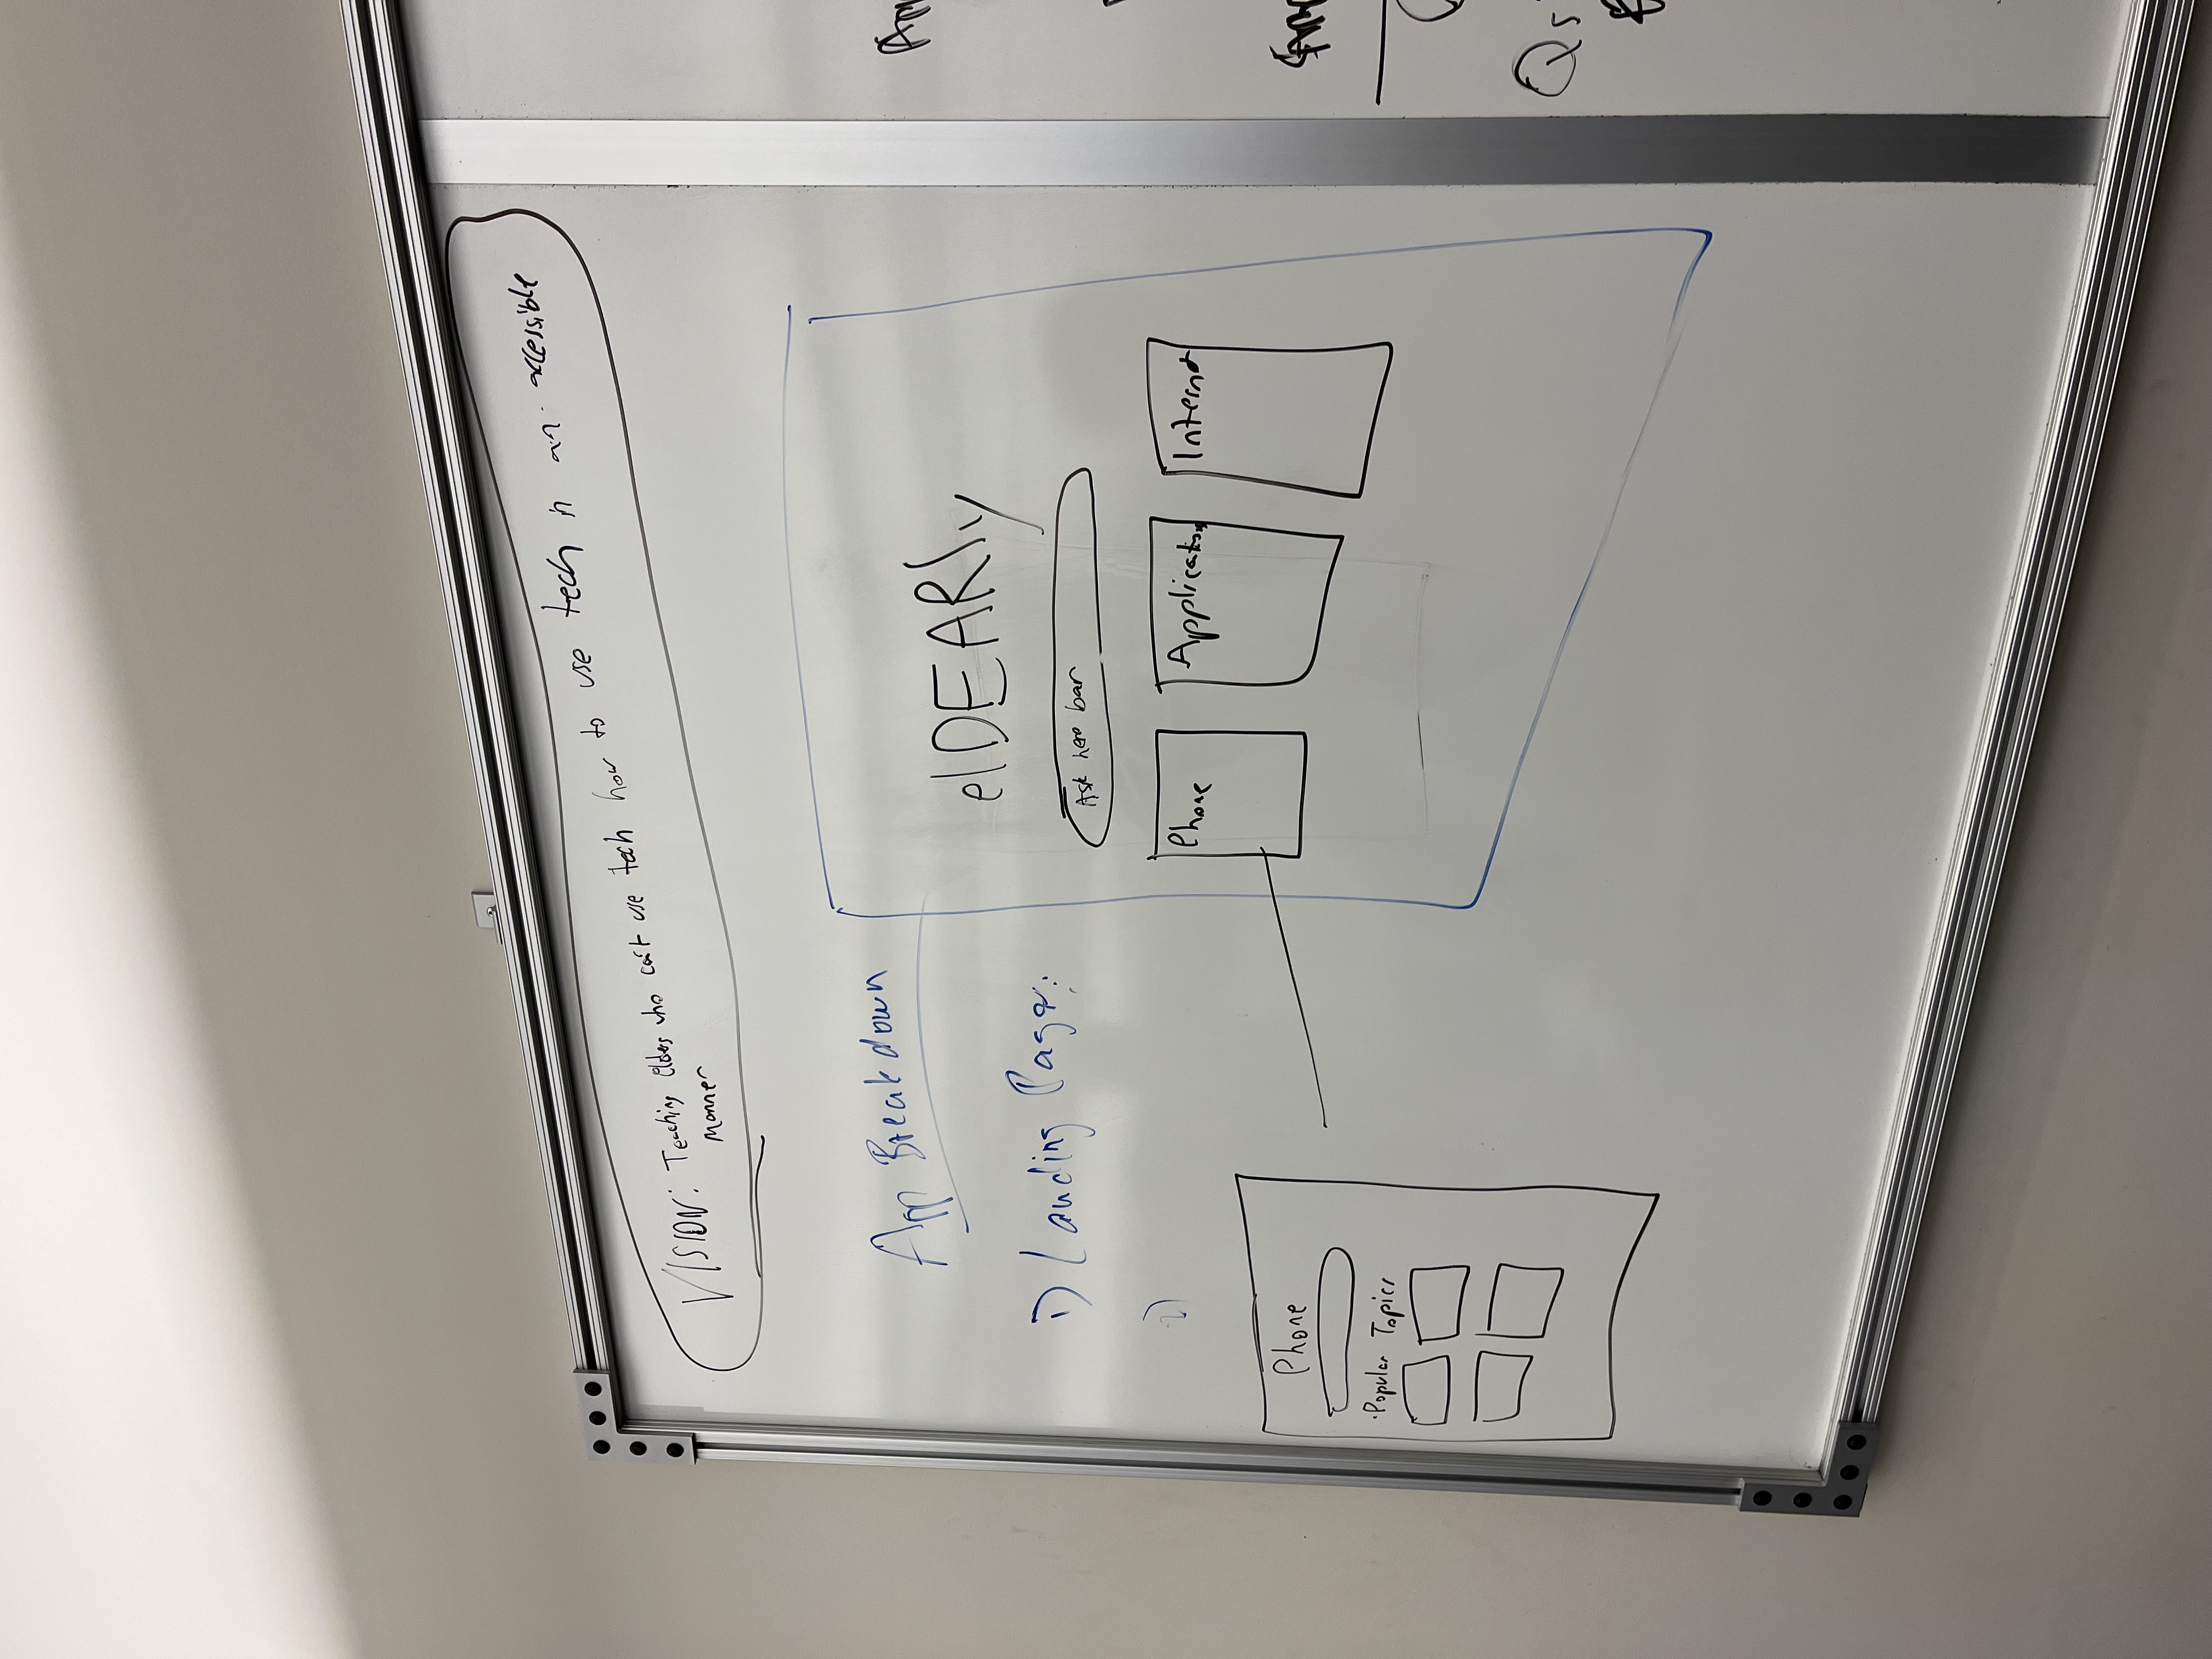 VISION: Teaching elders who can't use tech how to use tech in an accessible
manner
App Breakdown
1) Landing Page:
2)
elDEARly
Ask here bar
Phone
Applications
Internet
Phone
• Popular Topics
Qs